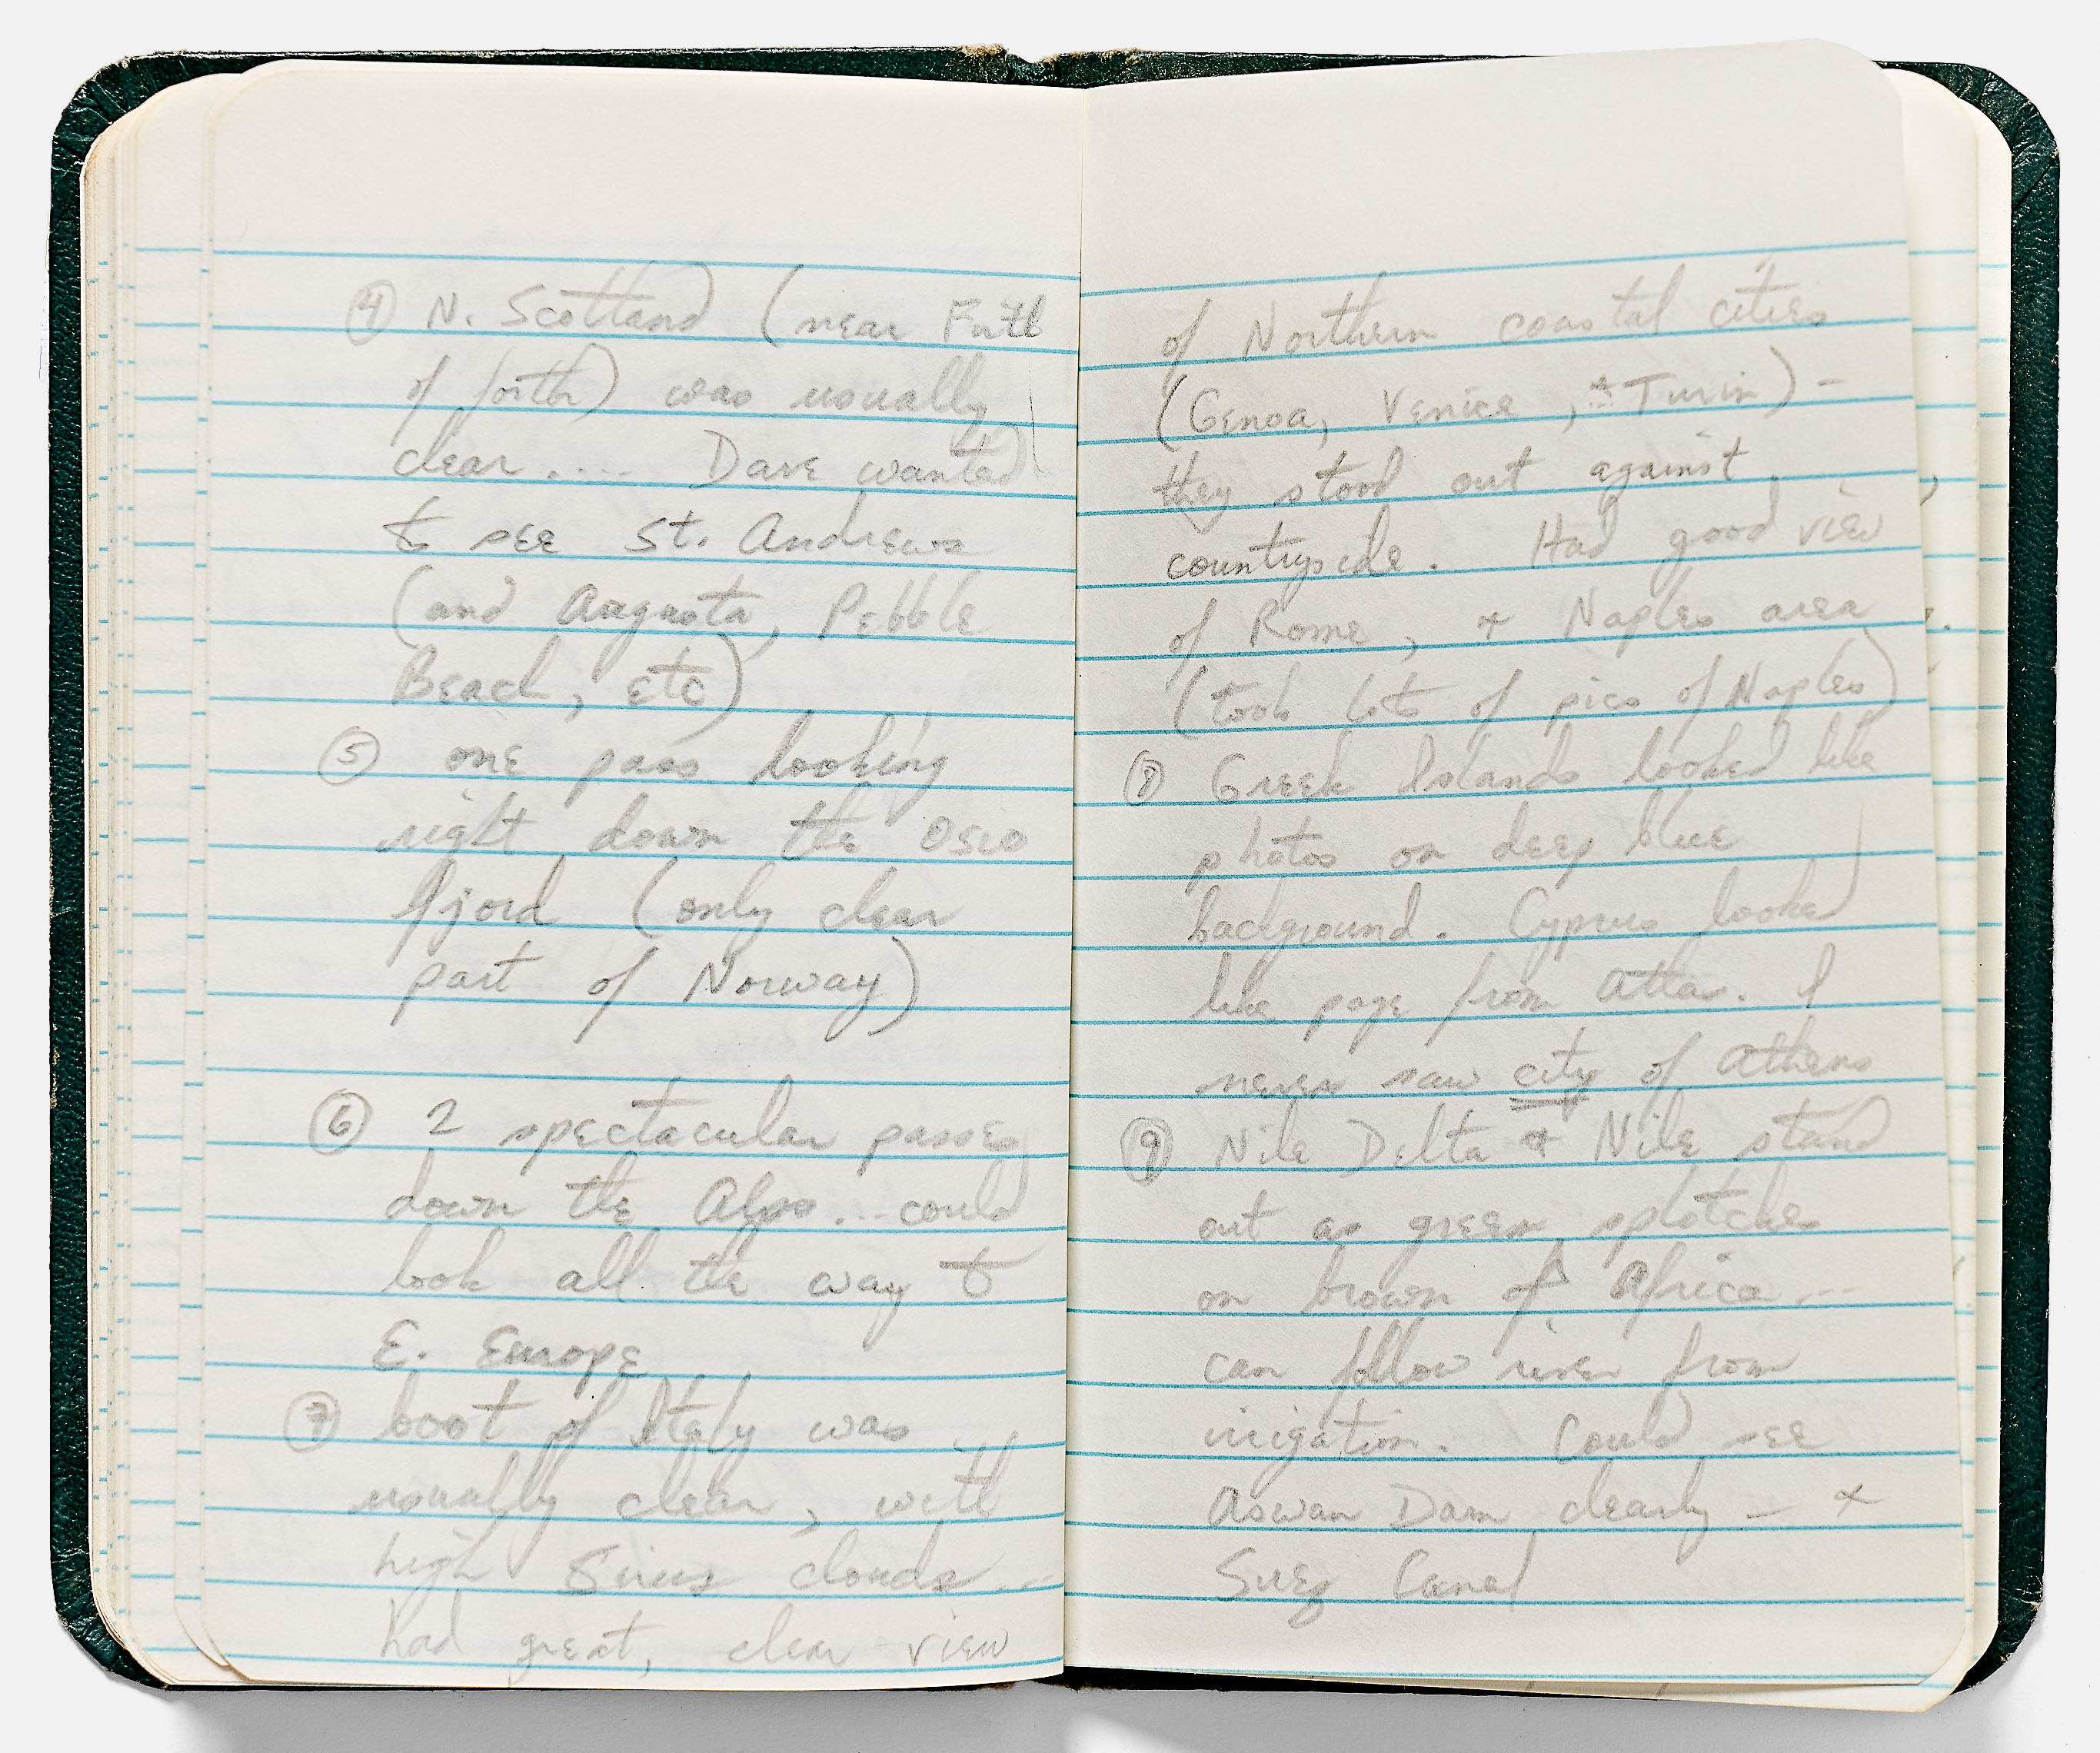 ④ N. Scotland (near Firth
of forth) was usually
clear.... Dave wanted
to see St. Andrews
(and Augusta, Pebble
Beach, etc)
⑤ one pass looking
right down the Oslo
fjord (only clear
part of Norway)
⑥ 2 spectacular passes
down the Alps... could
look all the way to
E. Europe
⑦ boot of Italy was
usually clear, with
high Sirius clouds...
had great, clear view
of Northern coastal cities
(Genoa, Venice, + Turin) -
they stood out against
countryside. Had good view
of Rome, + Naples area
(took lots of pics of Naples)
⑧ Greek Islands looked like
photos on deep blue
background. Cyprus looked
like page from Atlas. I
never saw city of Athens
⑨ Nile Delta + Nile stand
out as green splotches
on brown of Africa...
can follow river from
irrigation. Could see
Aswan Dam clearly - +
Suez Canal